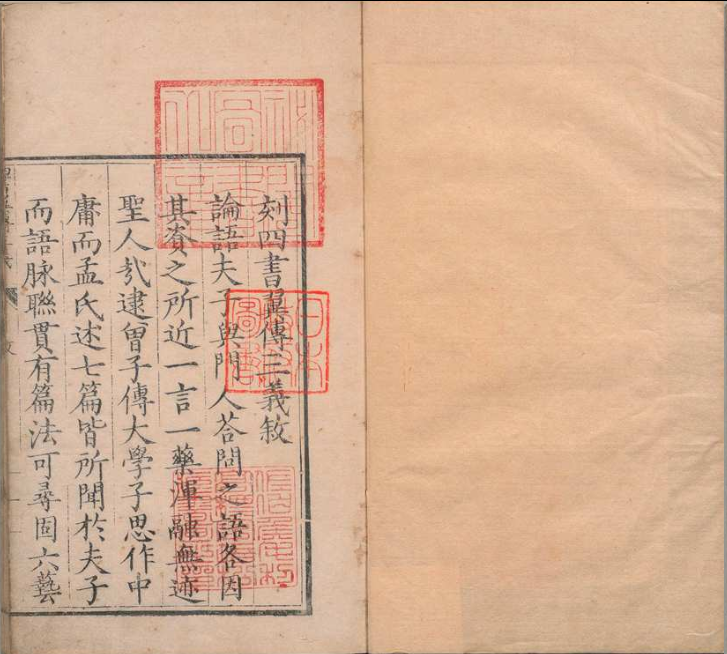 刻四書翼傳三義敘
論語夫子與門人荅問之語各因
其資之所近一言一藥渾融無迹
聖人哉逮曾子傳大學子思作中
庸而孟氏述七篇皆所聞於夫子
而語脉聯貫有篇法可尋固六藝